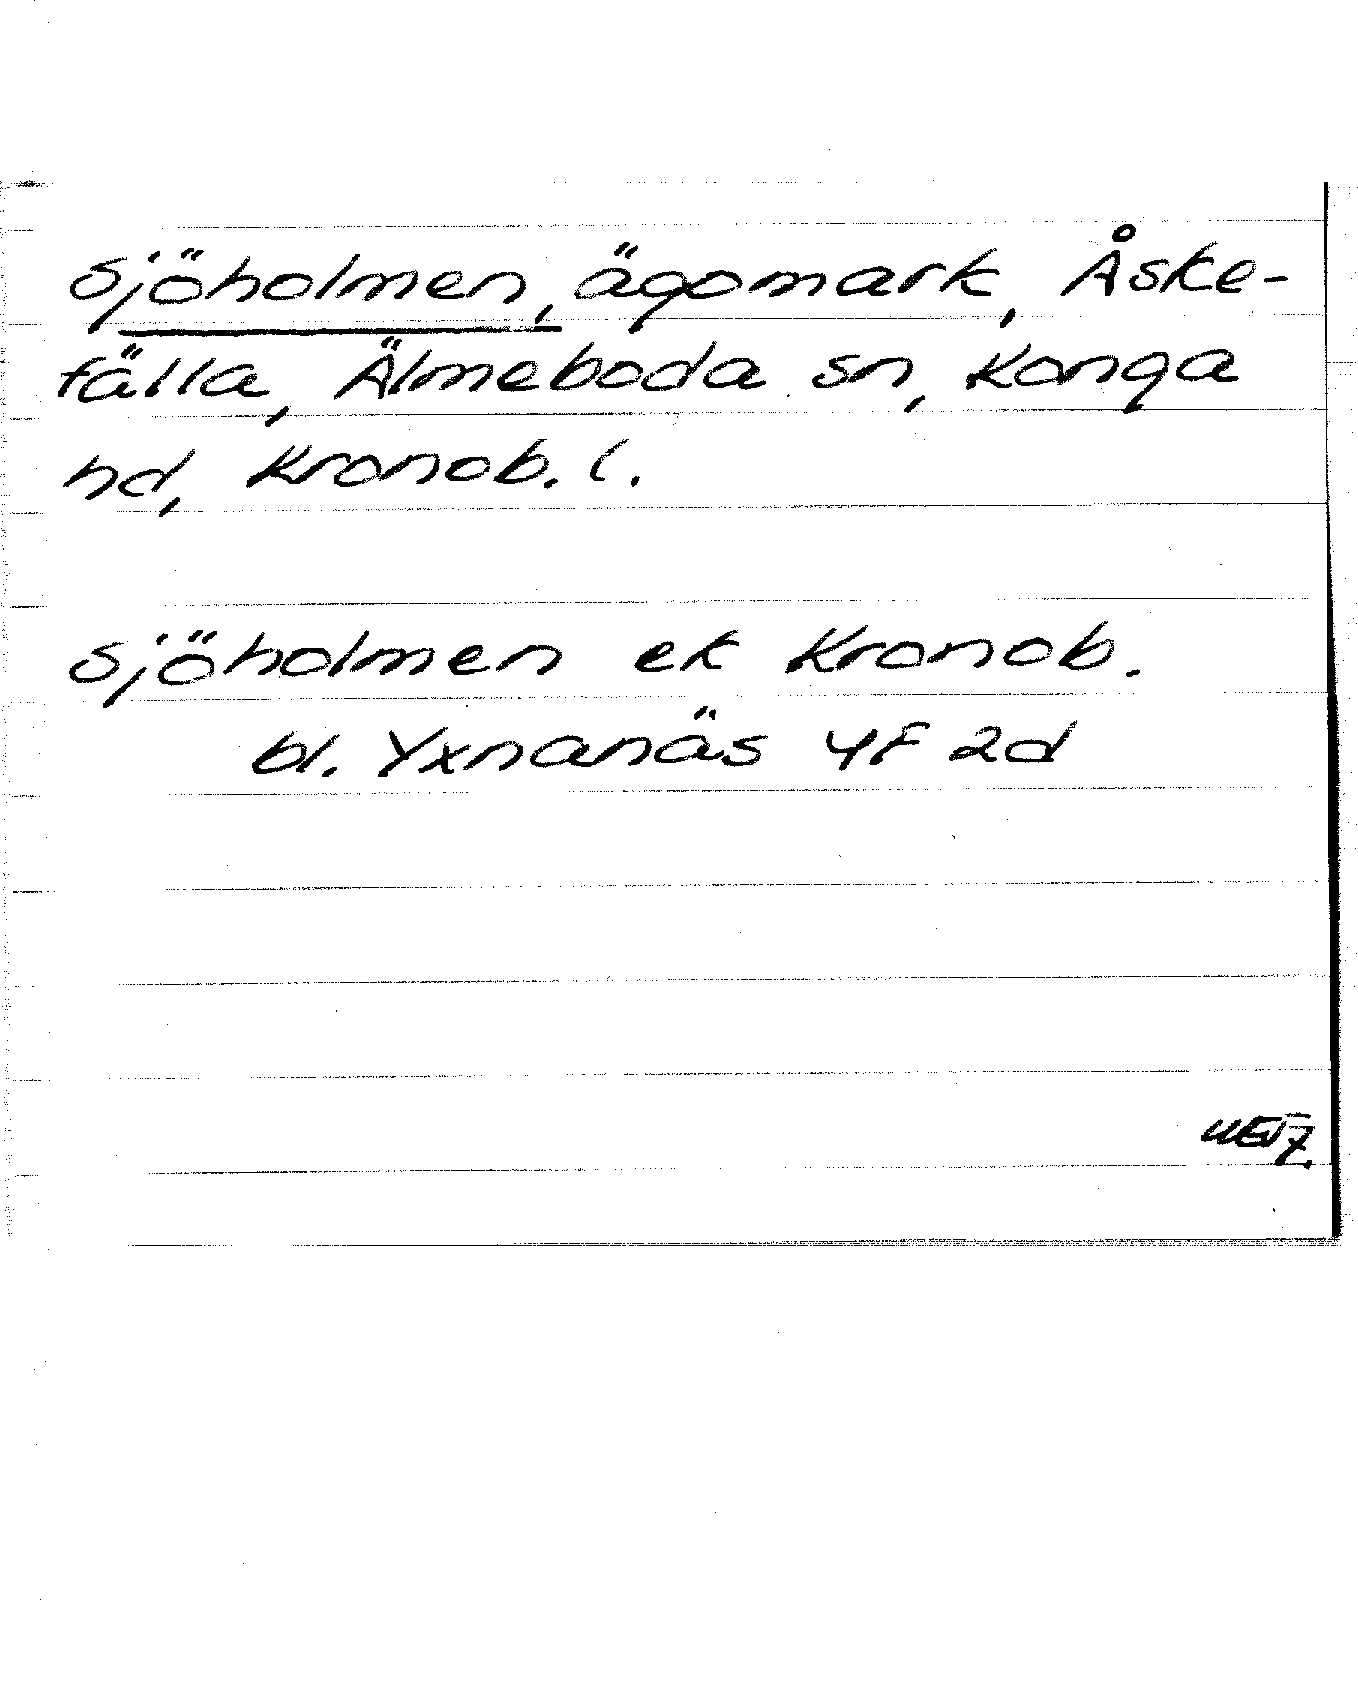 sjöholmen, ägomark, Åske-
fälla, Älmeboda sn, Konga
hd, Kronob. l.
sjöholmen ek Kronob.
bl. Yxnanäs 4F 2d